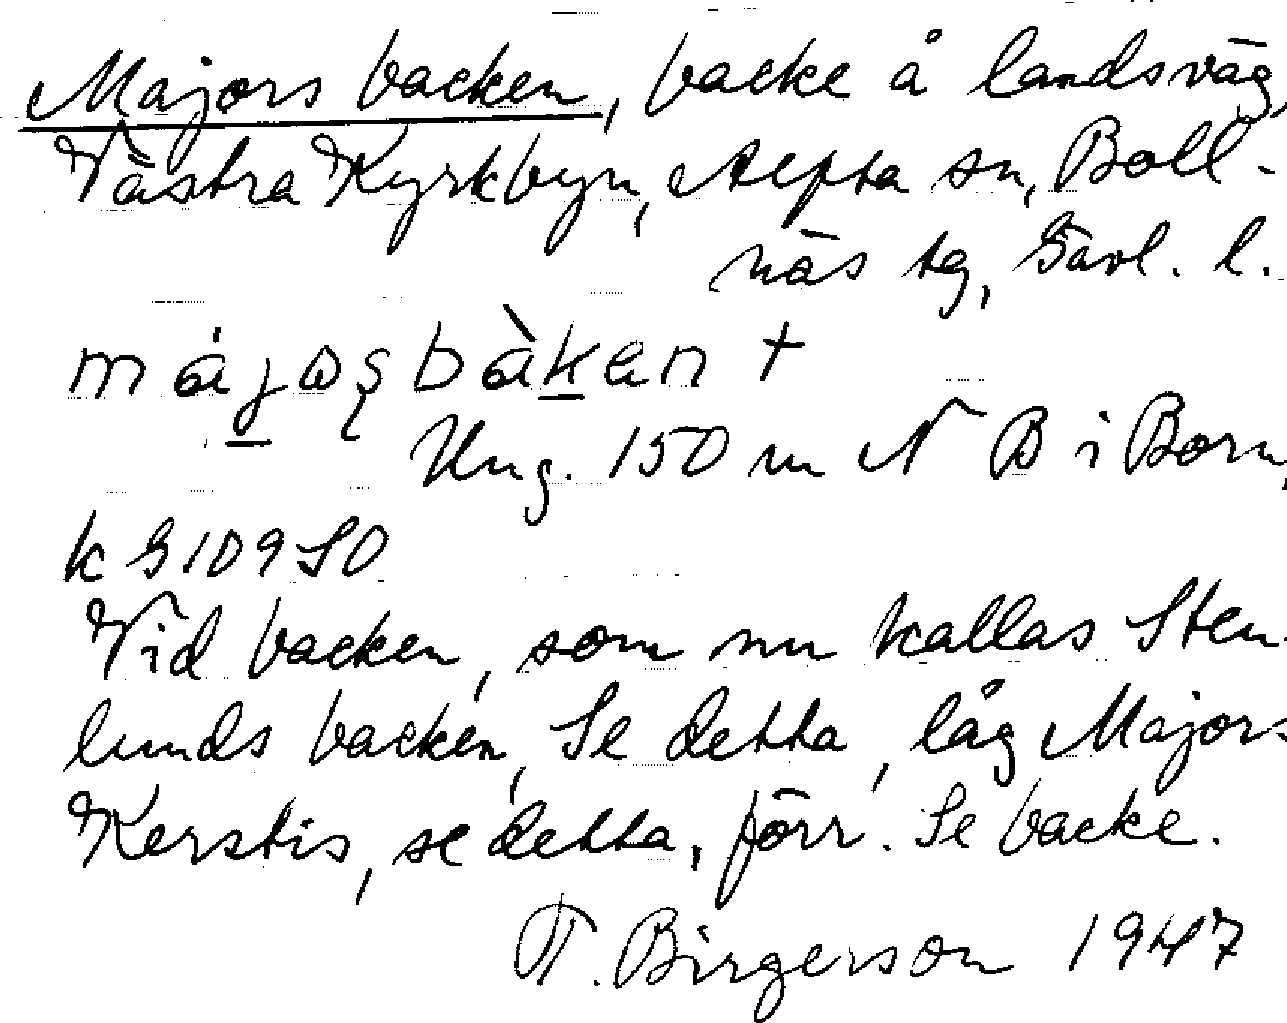 Majors backen, backe å landsväg,
Västra Kyrkbyn, Alfta sn, Boll-
näs tg, Gävl. l.
májosbàkan +
Ung. 150 m N B i Born,
k G 109 SO
Vid backen, som nu kallas Sten-
lunds backen, Se detta, låg Majors
Kerstis, se detta, förr. Se backe.
T. Birgerson 1947